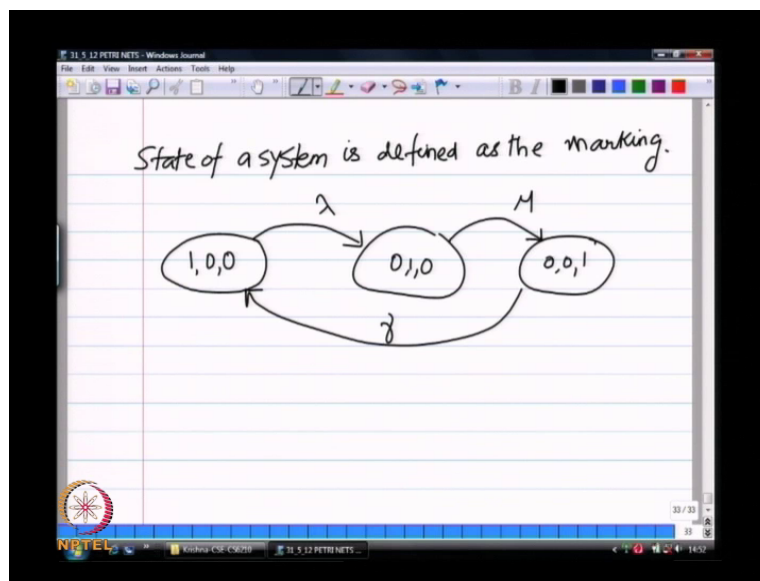 31_5_12 PETRI NETS - Windows Journal
File Edit View Insert Actions Tools Help
B I
State of a system is defined as the marking.
λ
μ
1,0,0
0,1,0
0,0,1
γ
33 / 33
33
NPTEL
Krishna-CSE-CS6210
31_5_12 PETRI NETS ...
1452